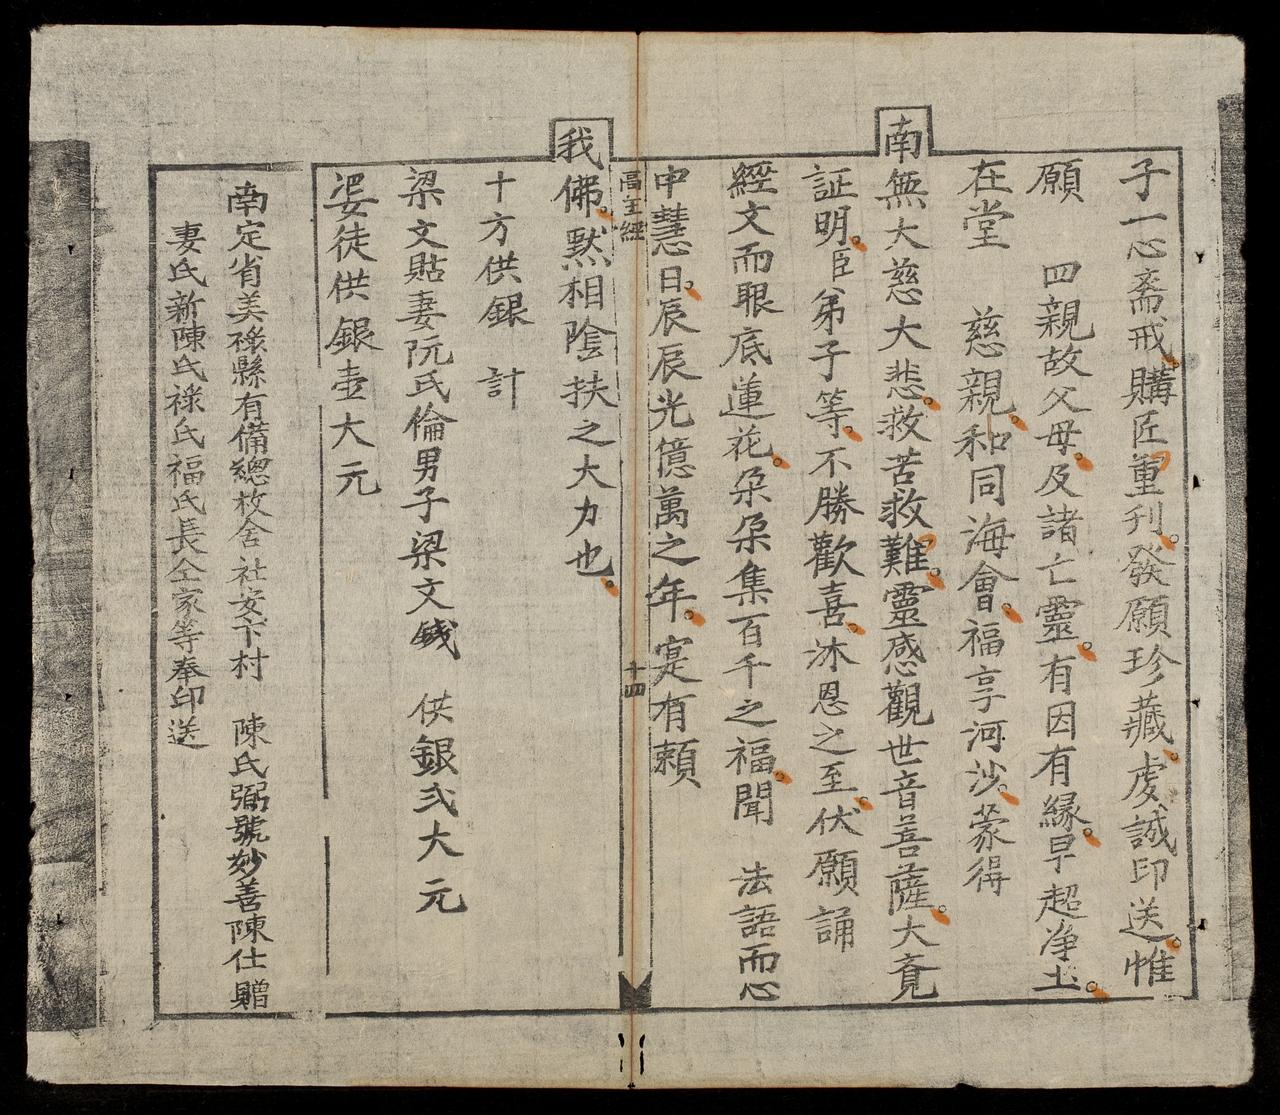 子一心齋戒購匠重刊。發願珍藏。虔誠印送。惟
願 四親故父母。及諸亡靈。有因有緣。早超净土。
在堂 慈親。和同海會。福享河沙。蒙得
南無大慈大悲。救苦救難。靈感觀世音菩薩。大竟
証明。臣弟子等。不勝歡喜。沐恩之至。伏願誦
經文而眼底蓮花。朶朶集百千之福。聞 法語而心
中慧日。辰辰光億萬之年。寔有賴
高王經
十四
我佛。默相陰扶之大力也。
十方供銀 計
梁文貼妻阮氏倫男子梁文錢 供銀弍大元
婆徒供銀壹大元
南定省美祿縣有備總枚舍社安下村 陳氏弼號妙善陳仕贈
妻氏新陳氏祿氏福氏長仝家等奉印送